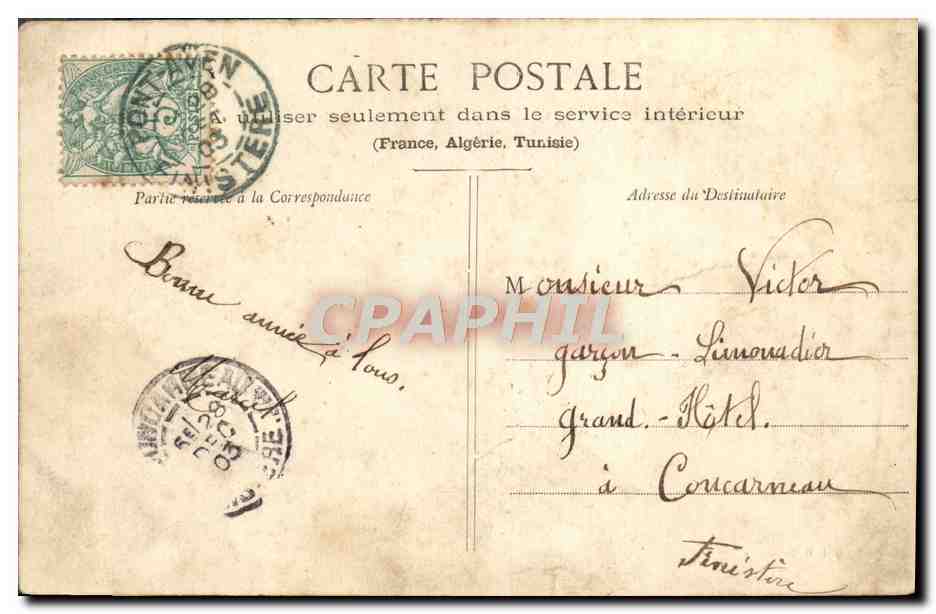 CARTE POSTALE
utiliser seulement dans le service intérieur
(France, Algérie, Tunisie)
PONT-AVEN
FINISTERE
5
POSTES
Partie réservée à la Correspondance
Bonne année à tous.
CONCARNEAU
28
03
Adresse du Destinataire
Monsieur Victor
garçon - Limonadier
grand - Hôtel.
à Concarneau
Finistère
CPAPHIL